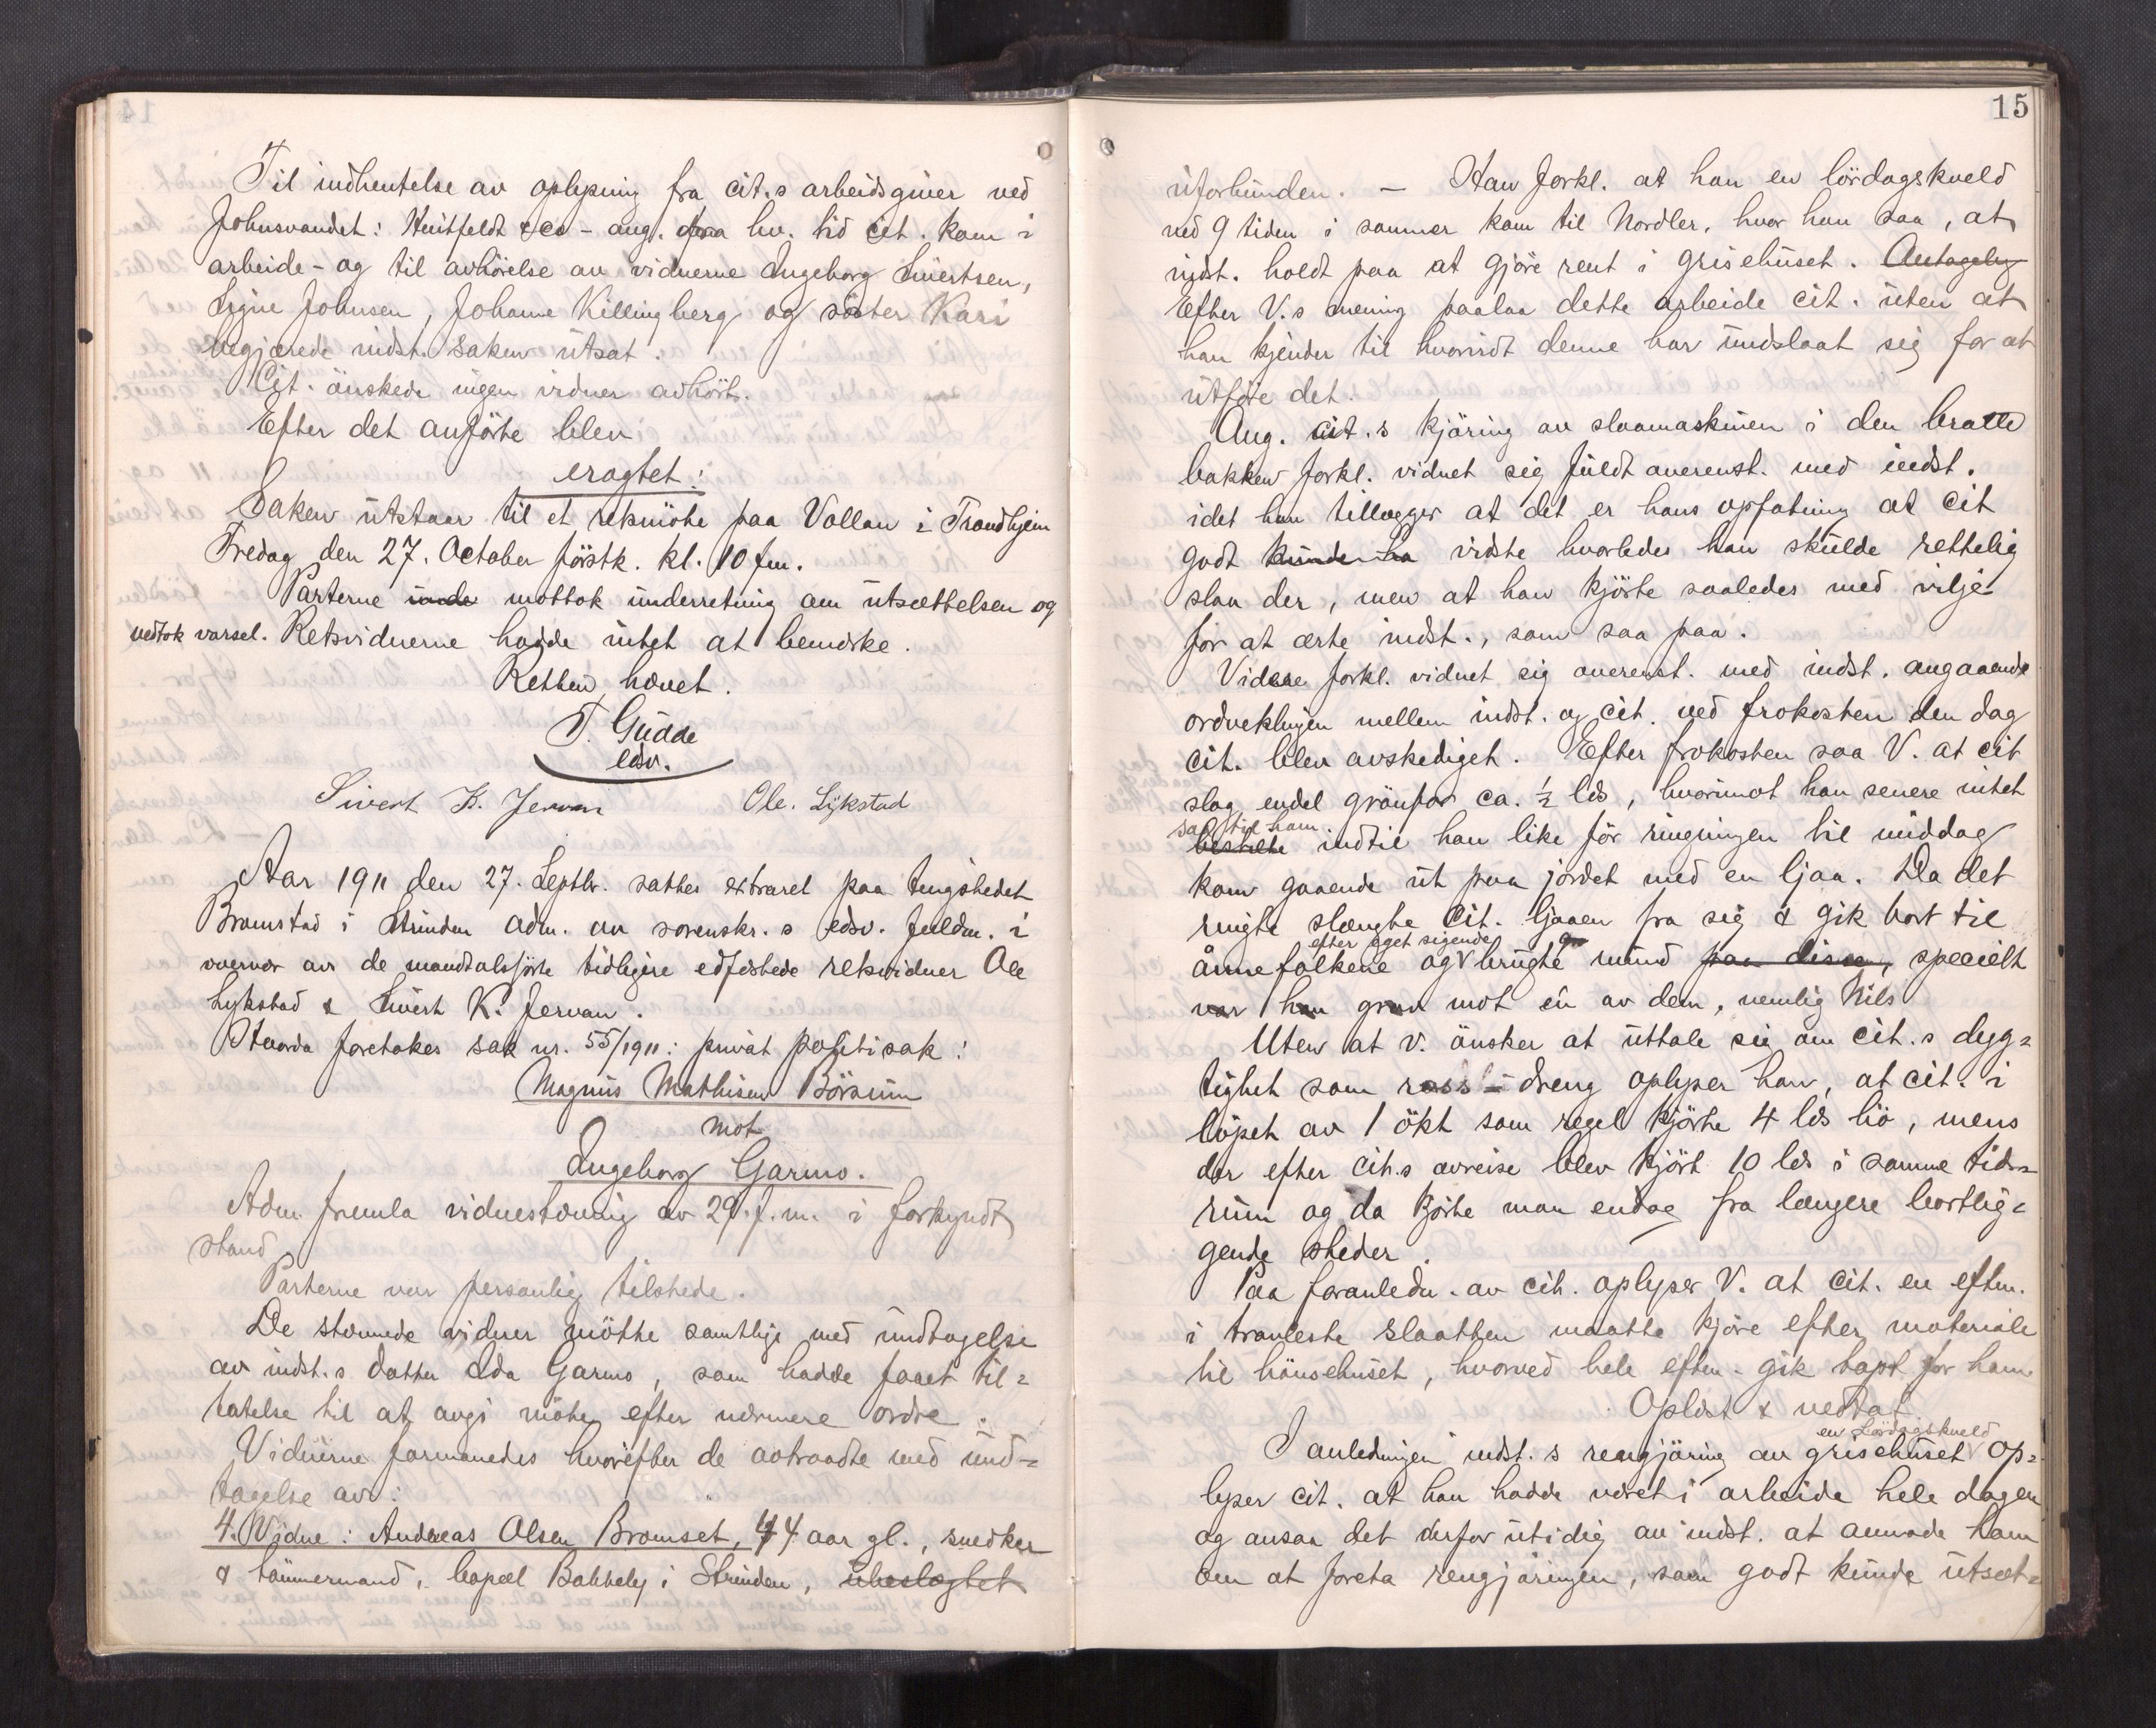 Til indhentelse av oplysning fra cit.s arbeidsgiver ved
Johnsvandet: Huitfeldt & co - ang. fra hv. tid cit. kom i
arbeide - og til avhörelse av vidnerne Ingeborg Sivertsen,
Signe Johnsen, Johanne Killingberg og söster Kari
begjærede indst. saken utsat.
Cit. önskede ingen vidner avhört.
Efter det anförte blev
eragtet:
Saken utstaar til et retsmöte paa Vollan i Trondhjem
Fredag den 27. October förstk. kl. 10 fm.
Parterne mottok underretning om utsættelsen og
vedtok varsel. Retsvidnerne hadde intet at bemerke.
Retten hævet.
T. Gudde
edsv.
Sivert K. Jervan Ole. Lykstad
Aar 1911 den 27. Septbr. sattes extraret paa tingstedet
Bromstad i Strinden adm. av sorenskr.s edsv. fuldm. i
overvær av de mandtalsförte tidligere edfæstede retsvidner Ole
Lykstad & Sivert K. Jervan.
Hvorda foretokes sak nr. 55/1911: privat politisak:
Magnus Mathisen Börsum
mot
Ingeborg Garmo.
Adm. fremla vidnestævning av 29. f. m. i forkyndt
stand.
Parterne var personlig tilstede.
De stævnede vidner mötte samtlige med undtagelse
av indst.s datter Ida Garmo, som hadde faaet til=
latelse til at avgi möte efter nærmere ordre.
Vidnerne formanedes hvorefter de avtraadte med und=
tagelse av:
4. Vidne: Andreas Olsen Bromset, 44 aar gl., snedker
& tömmermand, bopæl Bakkely i Strinden, ubeslægtet
15
uforbunden. - Han forkl. at han en lördagskveld
ved 9 tiden i sommer kom til Nordler, hvor han saa, at
indst. holdt paa at gjöre rent i grisehuset. Antagelig
Efter V.s mening paalaa dette arbeide cit. uten at
han kjender til hvorvidt denne har undslaat sig for at
utföre det.
Ang. cit.s kjöring av slaamaskinen i den bratte
bakken forkl. vidnet sig fuldt overenst. med indst.
idet han tillægger at det er hans opfatning at cit
godt kunde ha vidste hvorledes han skulde rettelig
slaa der, men at han kjörte saaledes med vilje
for at ærte indst., som saa paa.
Videre forkl. vidnet sig overenst. med indst. angaaende
ordvekslingen mellem indst. og cit. ved frokosten den dag
cit. blev avskediget. Efter frokosten saa V. at cit
slog endel grönfor ca. 1/2 lds, hvorimot han senere intet
saa til ham
bestilte indtil han like för ringningen til middag
kom gaaende ut paa jordet med en ljaa. Da det
ringte slængte cit. ljaaen fra sig & gik bort til
efter eget sigende
önnefolkene og brugte mund paa disse, specielt
var han grov mot en av dem, nemlig Nils
Uten at v. önsker at uttale sig om cit.s dyg=
tighet som dreng oplyser han, at cit. i
löpet av 1 ökt som regel kjörte 4 lds hö, mens
der efter cit.s avreise blev kjört 10 lds i samme tids=
rum og da kjörte man endog fra længere bortlig=
gende steder.
Paa foranledn. av cit. oplyser V. at cit. en efterm.
i travleste slaatten maatte kjöre efter materiale
til hönsehuset, hvorved hele efterm. gik tapt for ham.
Oplæst & vedtat
en Lördagskveld
I anledningen indst.s rengjöring av grisehuset op=
lyser cit. at han hadde været i arbeide hele dagen
og ansaa det derfor utidig av indst. at anmode ham
om at foreta rengjöringen, som godt kunde utsæt=